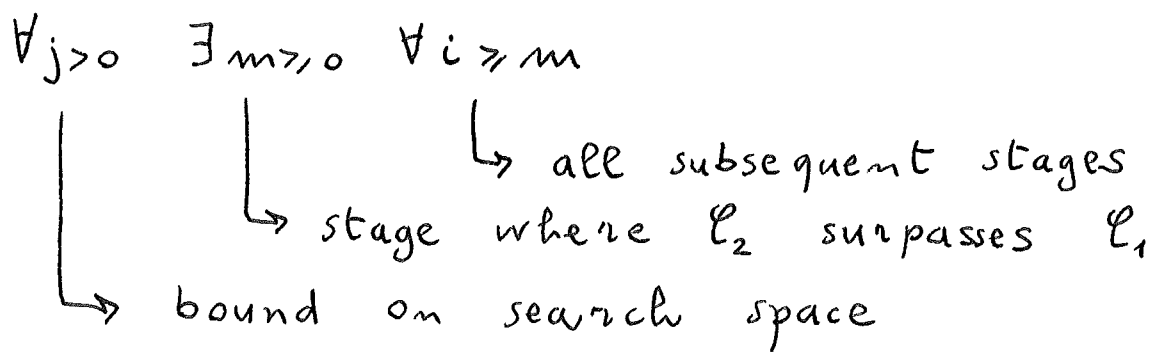 ∀j>0 ∃m⩾0 ∀i⩾m
all subsequent stages
stage where 𝒞₂ surpasses 𝒞₁
bound on search space